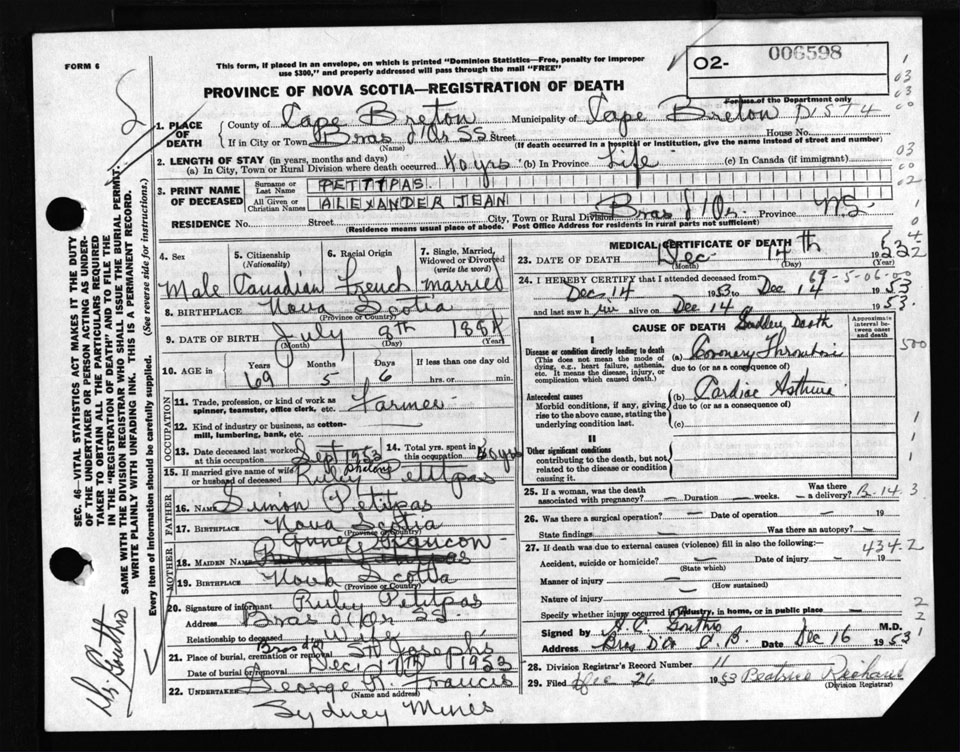 FORM 6
This form, if placed in an envelope, on which is printed "Dominion Statistics—Free, penalty for improper
use $300," and properly addressed will pass through the mail "FREE"
O2- 006598
For use of the Department only
PROVINCE OF NOVA SCOTIA—REGISTRATION OF DEATH
1. PLACE OF DEATH
County of Cape Breton Municipality of Cape Breton DIST 4
If in City or Town Bras d'Or SS Street House No.
(Name) (If death occurred in a hospital or institution, give the name instead of street and number)
2. LENGTH OF STAY (in years, months and days)
(a) In City, Town or Rural Division where death occurred 40 yrs (b) In Province Life (c) In Canada (if immigrant)
3. PRINT NAME OF DECEASED
Surname or Last Name PETITPAS
All Given or Christian Names ALEXANDER JEAN
RESIDENCE No. Street City, Town or Rural Division Bras d'Or Province N.S.
(Residence means usual place of abode. Post Office Address for residents in rural parts not sufficient)
4. Sex 5. Citizenship (Nationality) 6. Racial Origin 7. Single, Married, Widowed or Divorced (write the word)
Male Canadian French married
8. BIRTHPLACE Nova Scotia
(Province or Country)
9. DATE OF BIRTH July 8th 1884
(Month) (Day) (Year)
10. AGE in Years Months Days If less than one day old
69 5 6 hrs. or min.
OCCUPATION
11. Trade, profession, or kind of work as
spinner, teamster, office clerk, etc. Farmer
12. Kind of industry or business, as cotton-
mill, lumbering, bank, etc.
13. Date deceased last worked at this occupation Sept 1953 14. Total yrs. spent in this occupation 40 yrs
15. If married give name of wife or husband of deceased Ruby Petitpas
FATHER
16. NAME Simon Petitpas
17. BIRTHPLACE Nova Scotia
(Province or Country)
MOTHER
18. MAIDEN NAME
19. BIRTHPLACE Nova Scotia
(Province or Country)
20. Signature of informant Ruby Petitpas
Address Bras d'Or SS.
Relationship to deceased Wife
21. Place of burial, cremation or removal Bras d'Or St Joseph's
Date of burial or removal Dec. 17th 1953
22. UNDERTAKER George R. Francis
(Name and address)
Sydney Mines
MEDICAL CERTIFICATE OF DEATH
23. DATE OF DEATH Dec 14th 1953
(Month) (Day) (Year)
24. I HEREBY CERTIFY that I attended deceased from:
69-5-06-00
Dec 14 1953 to Dec 14 1953
and last saw him alive on Dec 14 1953.
CAUSE OF DEATH Sudden Death
Approximate interval between onset and death
I
Disease or condition directly leading to death (a) Coronary Thrombosis
(This does not mean the mode of dying, e.g., heart failure, asthenia, etc. It means the disease, injury, or complication which caused death.)
due to (or as a consequence of)
Antecedent causes (b) Cardiac Asthma
Morbid conditions, if any, giving rise to the above cause, stating the underlying condition last.
due to (or as a consequence of)
(c)
II
Other significant conditions
contributing to the death, but not related to the disease or condition causing it.
25. If a woman, was the death associated with pregnancy? — Duration — weeks. Was there a delivery? B-14.3
26. Was there a surgical operation? — Date of operation — 19
State findings — Was there an autopsy? —
27. If death was due to external causes (violence) fill in also the following:— 434-2
Accident, suicide or homicide? — Date of injury — 19
(State which)
Manner of injury —
(How sustained)
Nature of injury —
Specify whether injury occurred in industry, in home, or in public place —
Signed by M.D.
Address Bras D'Or C.B. Date Dec 16 1953
28. Division Registrar's Record Number 11
29. Filed Dec 26 1953 Beatrice
(Division Registrar)
SEC. 46—VITAL STATISTICS ACT MAKES IT THE DUTY
OF THE UNDERTAKER OR PERSON ACTING AS UNDER-
TAKER TO OBTAIN ALL THE PARTICULARS REQUIRED
IN THE "REGISTRATION OF DEATH" AND TO FILE THE
SAME WITH THE DIVISION REGISTRAR WHO SHALL ISSUE THE BURIAL PERMIT.
WRITE PLAINLY WITH UNFADING INK. THIS IS A PERMANENT RECORD.
Every item of information should be carefully supplied. (See reverse side for instructions.)